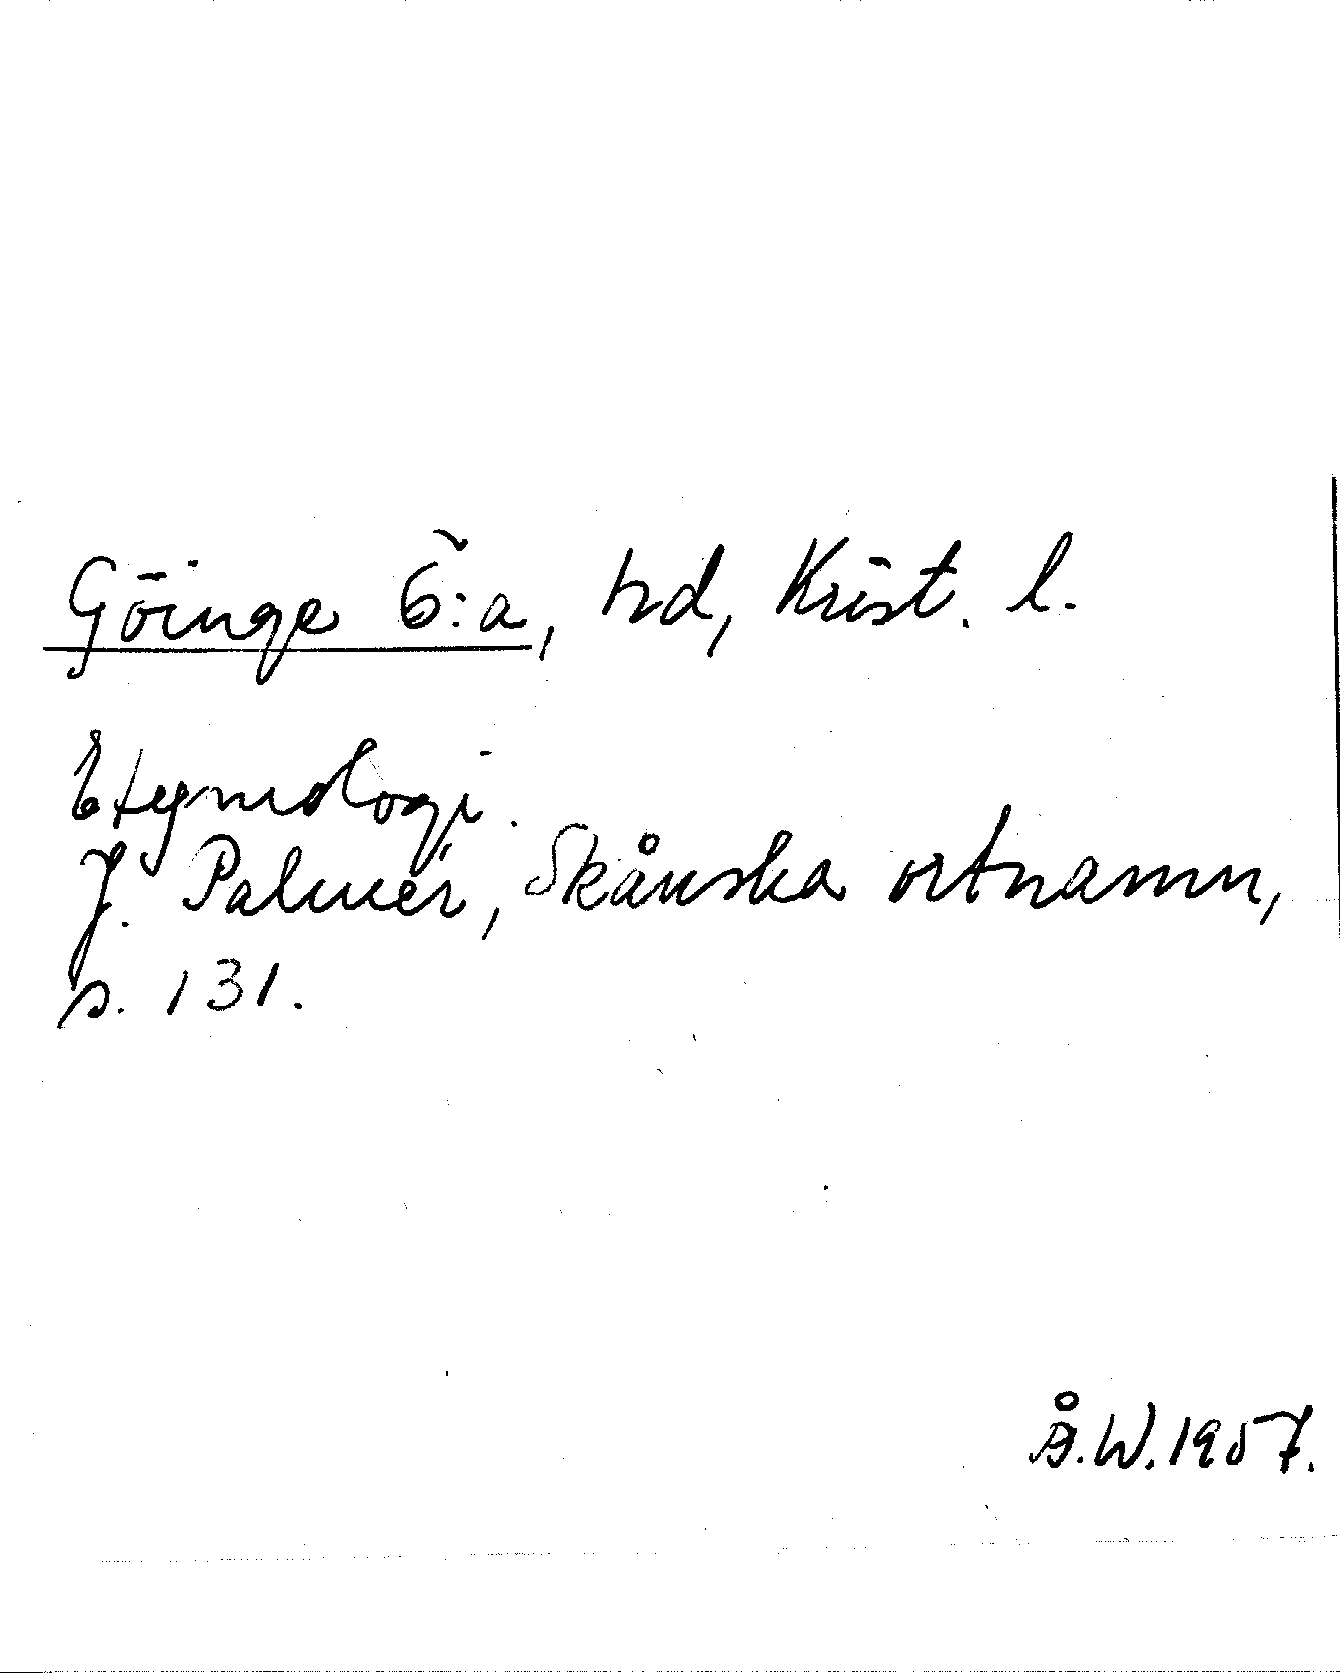 Göinge Ö:a, hd, Krist. l.
Etymologi.
J. Palmér, Skånska ortnamn,
s. 131.
Å.W.1957.